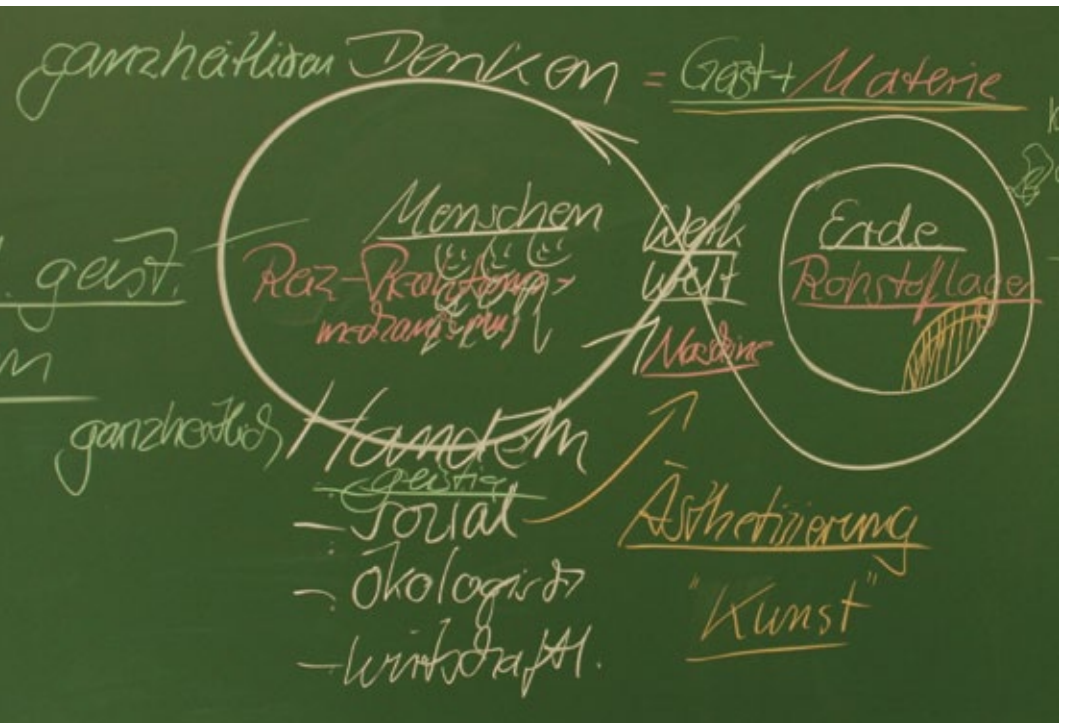 ganzheitliches Denken = Geist + Materie
Menschen
Werk
Welt
Erde
geist.
Reiz-Reaktions-
mechanismus
Rohstofflager
Maschine
ganzheitlich Handeln
geistig
- Sozial
- Ökologisch
- wirtschaftl.
Ästhetisierung
"Kunst"